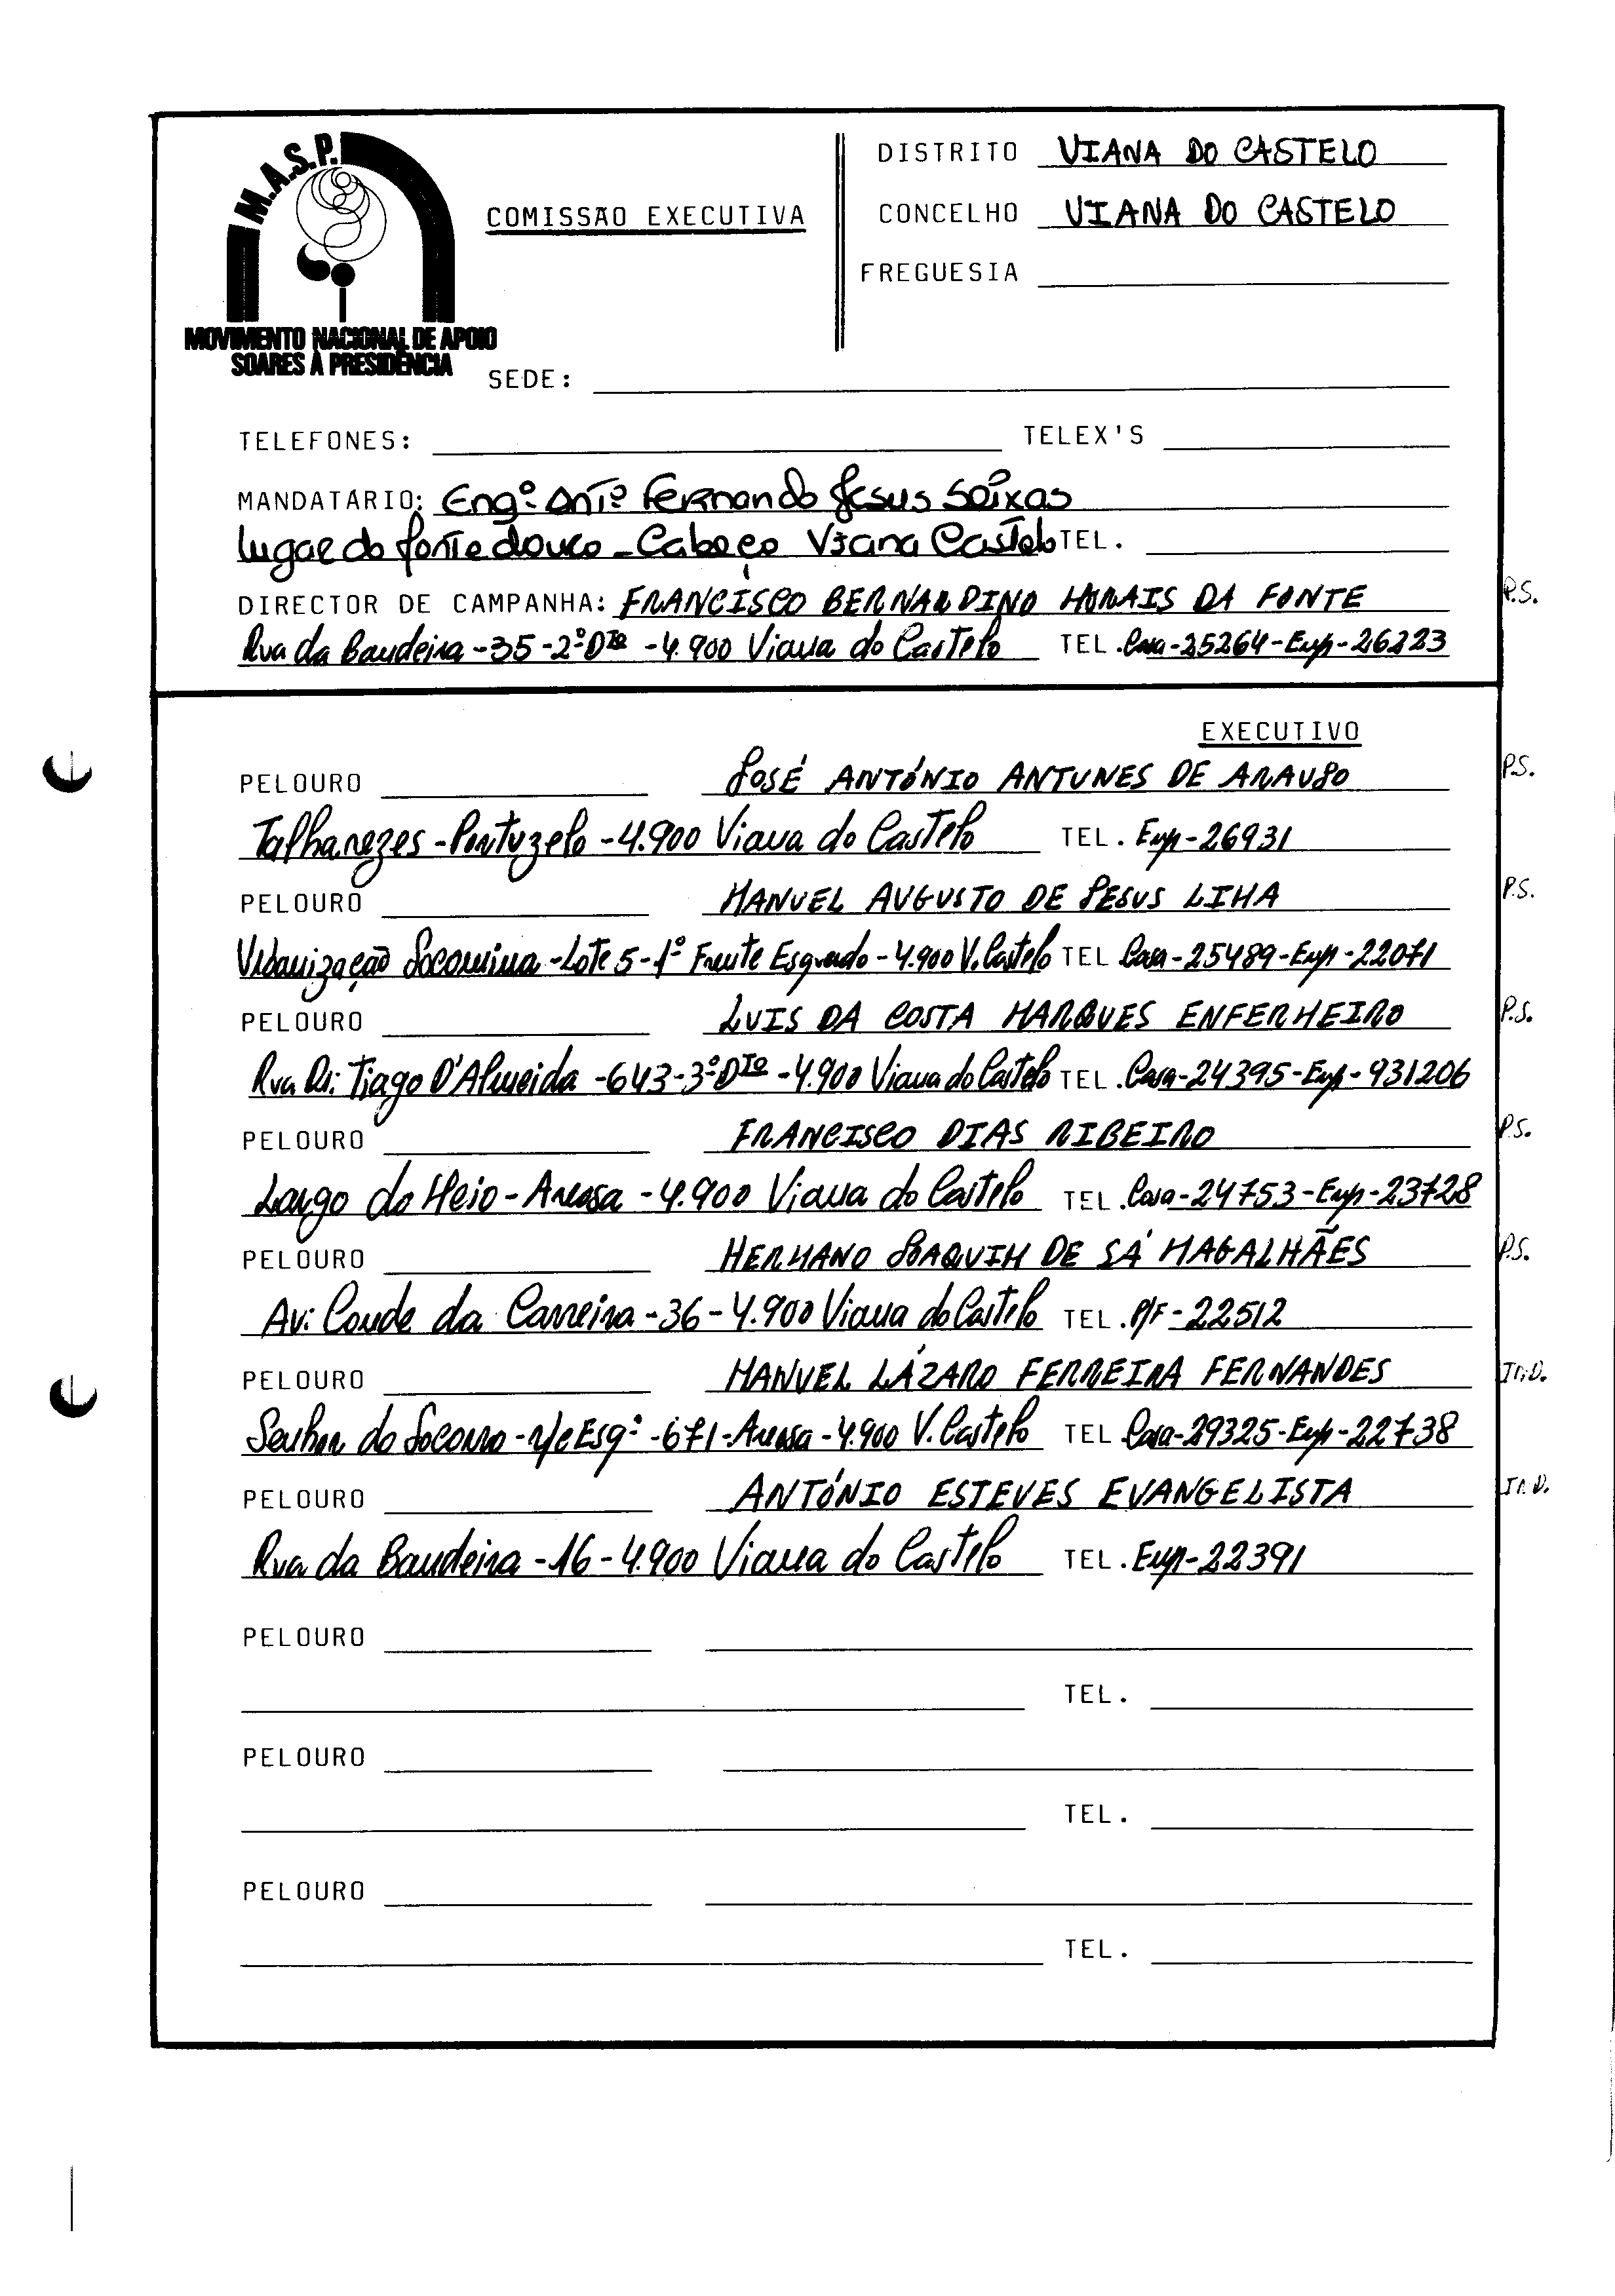 M.A.S.P.
MOVIMENTO NACIONAL DE APOIO
SOARES À PRESIDÊNCIA
COMISSÃO EXECUTIVA
DISTRITO VIANA DO CASTELO
CONCELHO VIANA DO CASTELO
FREGUESIA
SEDE:
TELEFONES: TELEX'S
MANDATARIO: Engº Antº Fernando Jesus Seixas
lugar do fonte douco - Cabeço Viana Castelo TEL.
DIRECTOR DE CAMPANHA: FRANCISCO BERNARDINO MORAIS DA FONTE P.S.
Rua da Bandeira - 35 - 2º Dto - 4.900 Viana do Castelo TEL. Casa - 25264 - Emp - 26223
EXECUTIVO
PELOURO JOSÉ ANTÓNIO ANTUNES DE ARAUJO P.S.
Talharezes - Portuzelo - 4.900 Viana do Castelo TEL. Emp - 26931
PELOURO MANUEL AUGUSTO DE JESUS LIMA P.S.
Urbanização Socomina - Lote 5 - 1º Frente Esquerdo - 4.900 V. Castelo TEL Casa - 25489 - Emp - 22071
PELOURO LUIS DA COSTA MARQUES ENFERMEIRO P.S.
Rua Dr: Tiago D'Almeida - 643 - 3º Dto - 4.900 Viana do Castelo TEL. Casa - 24395 - Emp - 931206
PELOURO FRANCISCO DIAS RIBEIRO P.S.
Largo do Meio - Areosa - 4.900 Viana do Castelo TEL. Casa - 24753 - Emp - 23728
PELOURO HERMANO JOAQUIM DE SÁ MAGALHÃES P.S.
Av: Conde da Carreira - 36 - 4.900 Viana do Castelo TEL. P/F - 22512
PELOURO MANUEL LÁZARO FERREIRA FERNANDES IND.
Senhor do Socorro - r/c Esqº - 671 - Areosa - 4.900 V. Castelo TEL Casa - 29325 - Emp - 22738
PELOURO ANTÓNIO ESTEVES EVANGELISTA IND.
Rua da Bandeira - 16 - 4.900 Viana do Castelo TEL. Emp - 22391
PELOURO
TEL.
PELOURO
TEL.
PELOURO
TEL.